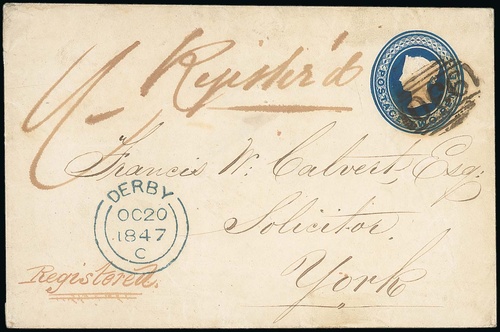 Register'd
Francis W. Calvert, Esq:
Solicitor
York
DERBY
OC20
1847
C
Registered.